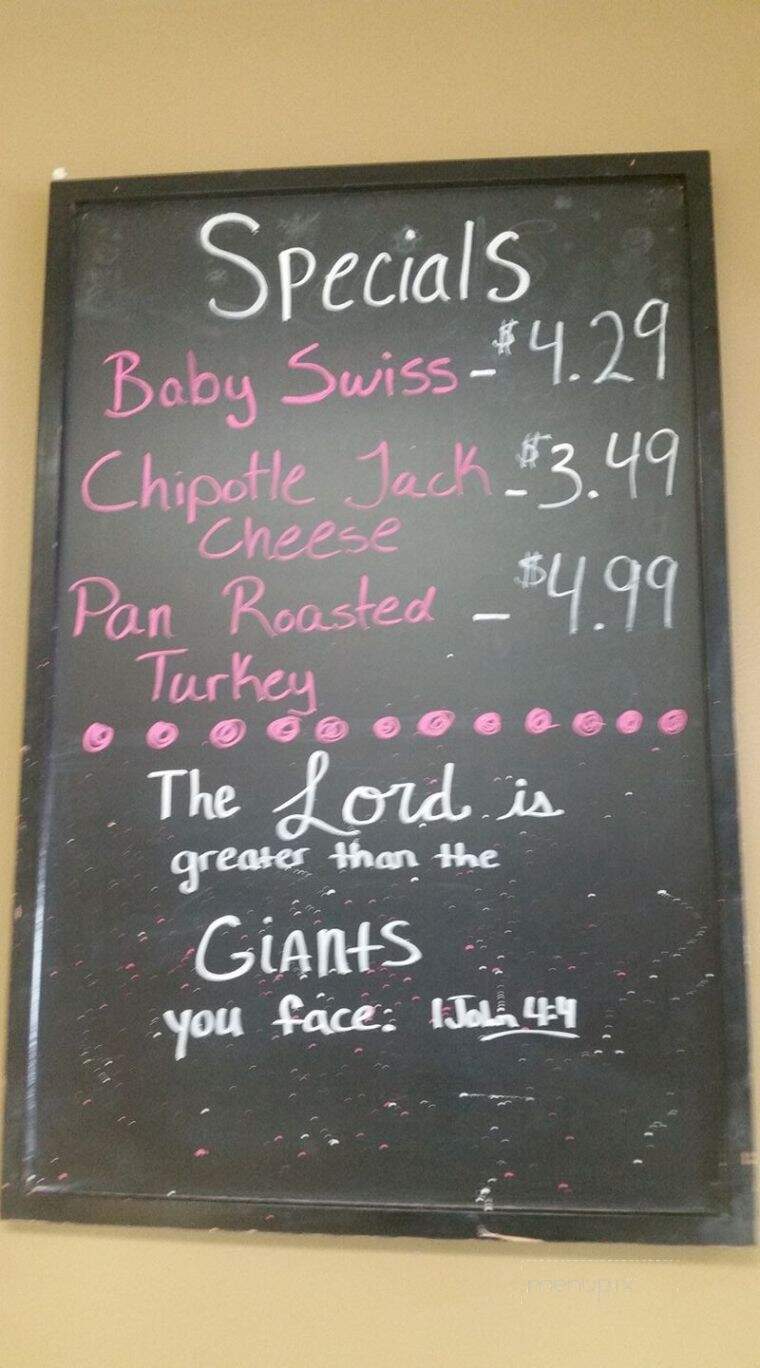 Specials
Baby Swiss - $4.29
Chipotle Jack - $3.49
Cheese
Pan Roasted - $4.99
Turkey
The Lord is
greater than the
GiANtS
you face. 1 John 4:4
menupix